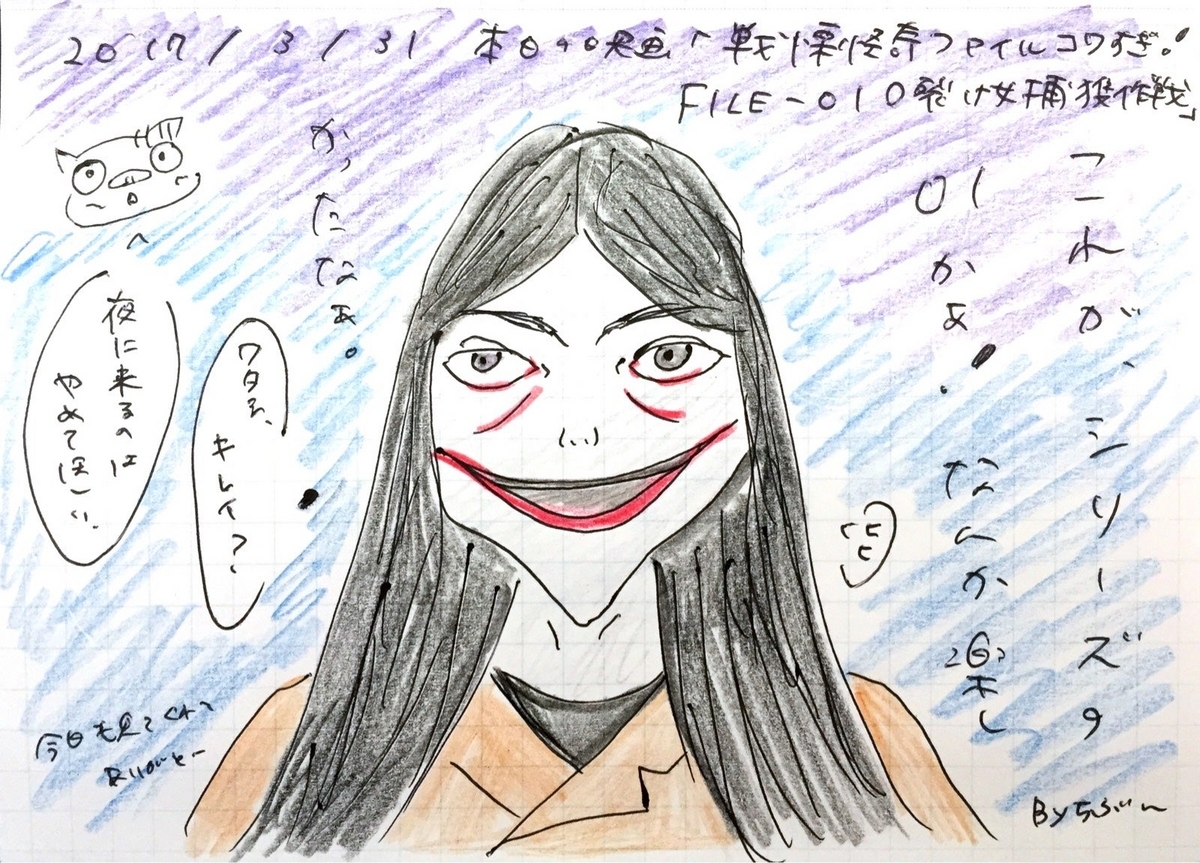 2017/3/31 本日の映画「戦慄怪奇ファイルコワすぎ!
FILE-01口裂け女捕獲作戦」
これが、シリーズの
01かぁ!なんか楽し
かったなぁ。
ワタシ、
キレイ?
夜に来るのは
やめてほしい。
ヒヒ
今日も見てくれて
ありがとー
Byちぶー